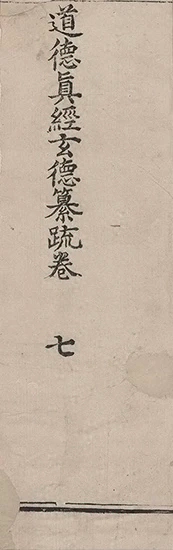 道德眞經玄德纂疏卷 七